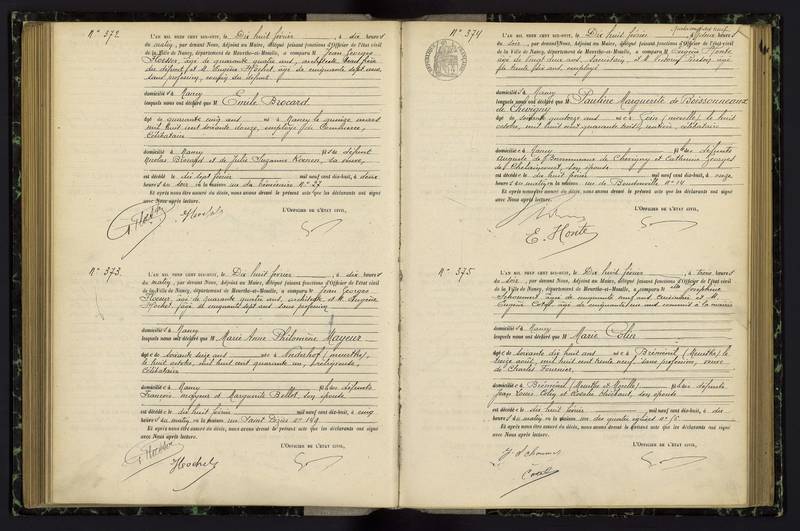 N° 372.
L'AN MIL NEUF CENT DIX-HUIT, le Dix huit février, à dix heures
du matin, par devant Nous, Adjoint au Maire, délégué faisant fonctions d'Officier de l'état civil
de la Ville de Nancy, département de Meurthe-et-Moselle, a comparu M Jean Georges
âgé de quarante quatre ans, architecte, beau frère
du défunt et M. Eugène Hochet, âgé de cinquante sept ans,
sans profession, cousin du défunt
domicilié s à Nancy
lesquels nous ont déclaré que M Emile Brocard
âgé de quarante cinq ans né à Nancy le quinze mars
mil huit cent soixante douze, employé de Commerce,
Célibataire
domicilié à Nancy fils de défunt
Nicolas Brocard et de Julie Suzanne sa veuve,
est décédé le dix sept février mil neuf cent dix-huit, à deux
heures du soir en la maison rue du N° 27
Et après nous être assuré du décès, nous avons dressé le présent acte que les déclarants ont signé
avec Nous après lecture.
L'OFFICIER DE L'ÉTAT CIVIL,
Hochet
N° 373.
L'AN MIL NEUF CENT DIX-HUIT, le Dix huit février, à dix heures
du matin, par devant Nous, Adjoint au Maire, délégué faisant fonctions d'Officier de l'état civil
de la Ville de Nancy, département de Meurthe-et-Moselle, a comparu M Jean Georges
âgé de quarante quatre ans, architecte et M. Eugène
Hochet, âgé de cinquante sept ans sans profession
domicilié s à Nancy
lesquels nous ont déclaré que M Marie Anne Philomène Mayeur
âgée de soixante seize ans née à Niderhof (meurthe),
le huit octobre, mil huit cent quarante un,
Célibataire
domiciliée à Nancy fille des défunts
François mayeur et Marguerite Bellot, son épouse
est décédée le dix huit février mil neuf cent dix-huit, à cinq
heures du matin, en la maison rue Saint Dizier n° 149
Et après nous être assuré du décès, nous avons dressé le présent acte que les déclarants ont signé
avec Nous après lecture.
L'OFFICIER DE L'ÉTAT CIVIL,
Hochet
N° 374
L'AN MIL NEUF CENT DIX-HUIT, le Dix huit février, à deux heures
du soir, par devant Nous, Adjoint au Maire, délégué faisant fonctions d'Officier de l'état civil
de la Ville de Nancy, département de Meurthe-et-Moselle, a comparu M Eugène Honte
âgé de vingt deux ans, sacristain, et M. âgé
de trente six ans, employé
domicilié s à Nancy
lesquels nous ont déclaré que M Pauline Marguerite de Boissonneaux
de Chevigny
âgée de soixante quatorze ans née à Goin (moselle), le huit
octobre, mil huit cent quarante trois, rentière, célibataire
domiciliée à Nancy fille des défunts
Auguste de Boissonneaux de Chevigny et Catherine Georges
de son épouse
est décédée le dix huit février mil neuf cent dix-huit, à onze
heures du matin, en la maison rue de Boudonville n° 14
Et après nous être assuré du décès, nous avons dressé le présent acte que les déclarants ont signé
avec Nous après lecture.
L'OFFICIER DE L'ÉTAT CIVIL,
E. Honte
N° 375
L'AN MIL NEUF CENT DIX-HUIT, le Dix huit février, à trois heures
du soir, par devant Nous, Adjoint au Maire, délégué faisant fonctions d'Officier de l'état civil
de la Ville de Nancy, département de Meurthe-et-Moselle, a comparu Mlle Joséphine
âgée de cinquante neuf ans et M.
Eugène âgé de cinquante un ans commis à la mairie
domicilié s à Nancy
lesquels nous ont déclaré que M Marie Colin
âgée de soixante dix huit ans née à Bréménil (Meurthe) le
treize août, mil huit cent trente neuf, sans profession, veuve
de Charles Fournier,
domiciliée à Bréménil (Meurthe et Moselle) fille des défunts
Jean Louis Colin et Rosalie son épouse
est décédée le dix huit février mil neuf cent dix-huit, à dix
heures du matin, en la maison rue des quatre églises n° 15
Et après nous être assuré du décès, nous avons dressé le présent acte que les déclarants ont signé
avec Nous après lecture.
L'OFFICIER DE L'ÉTAT CIVIL,